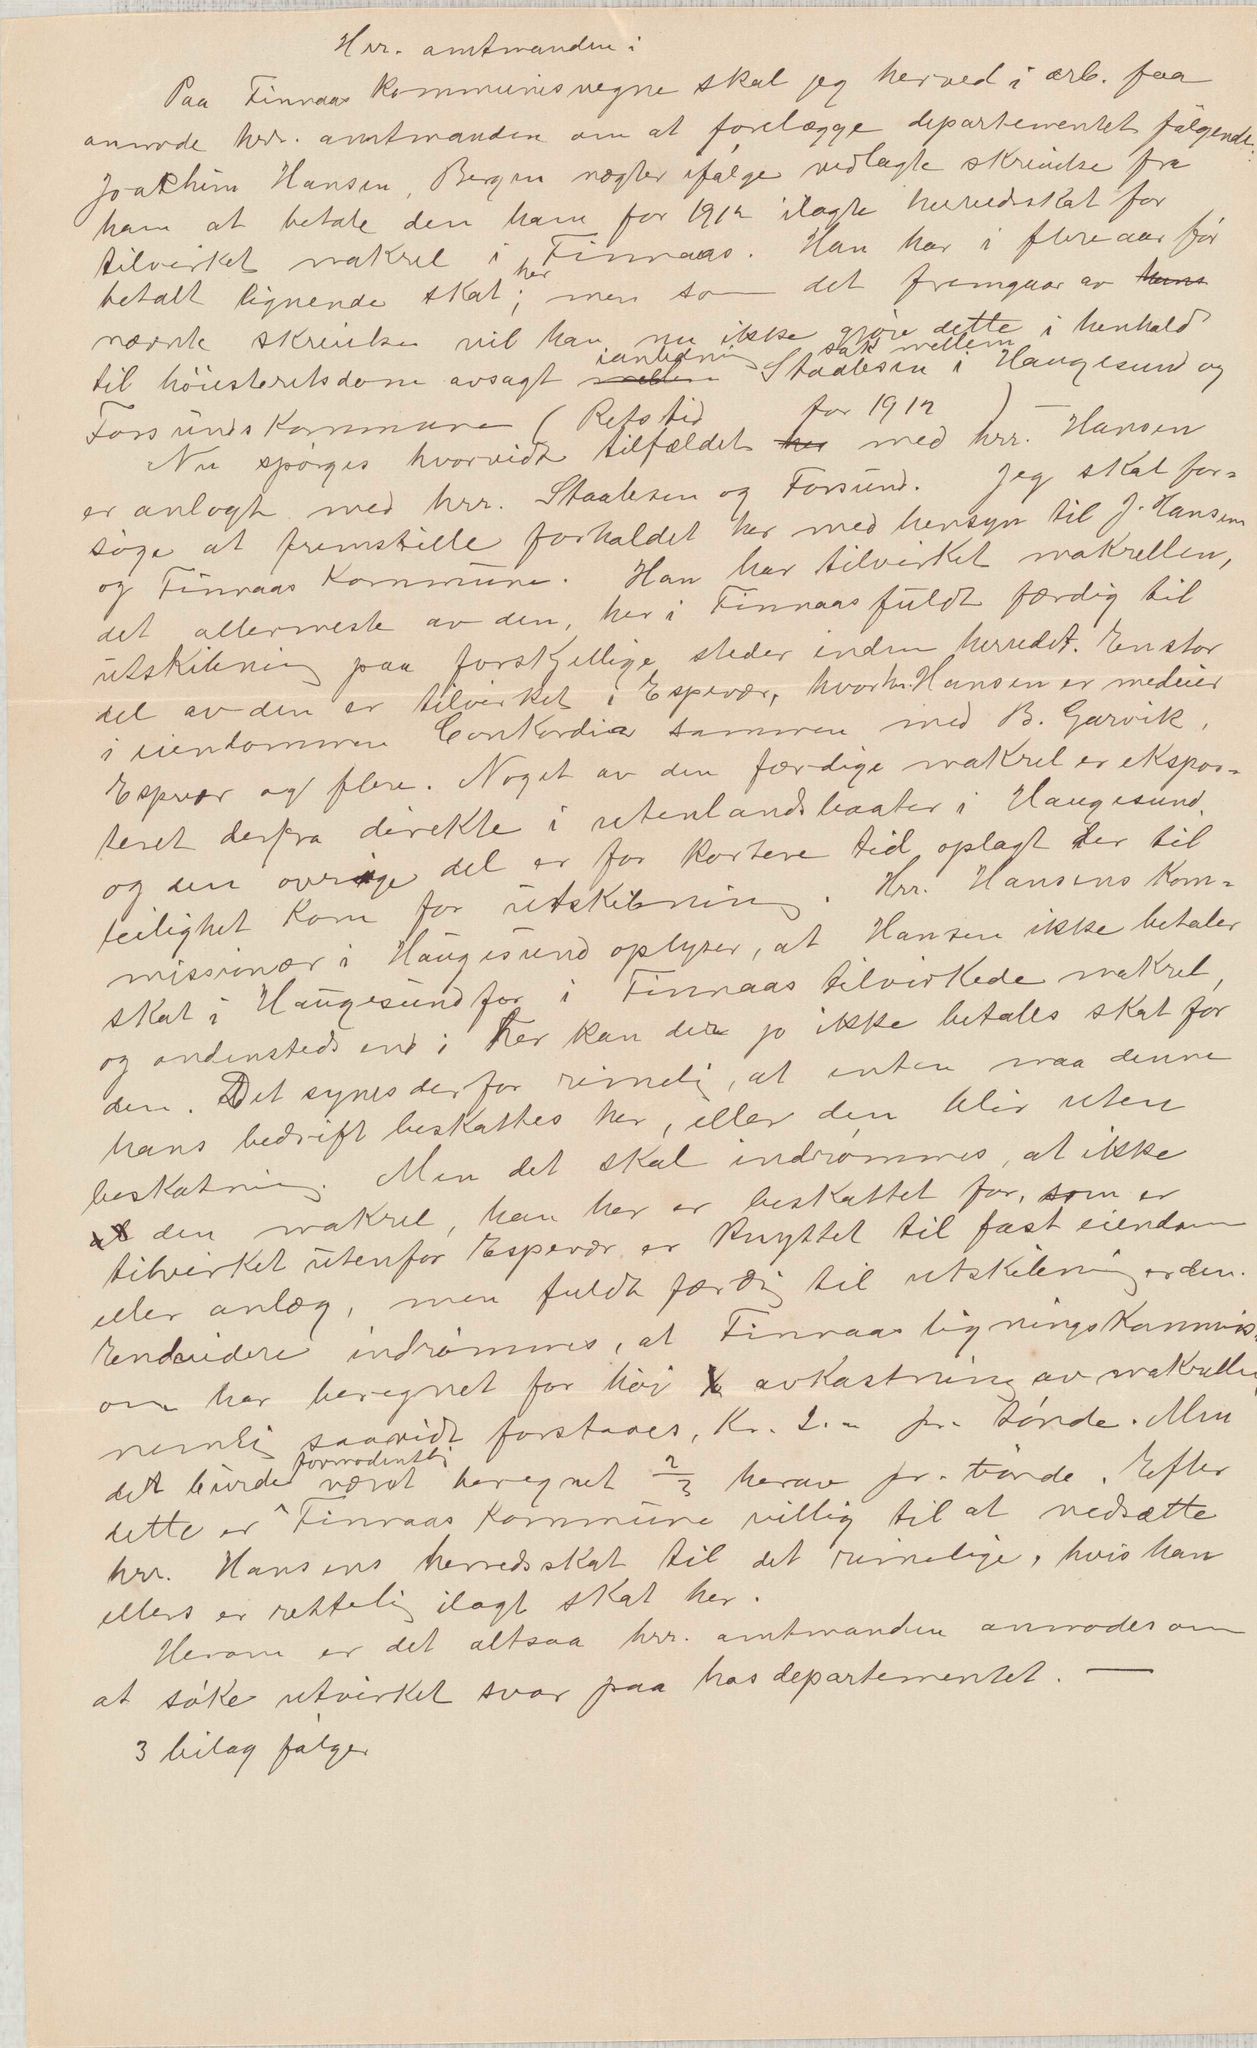 Hrr. amtmanden i
Paa Finnaas kommunesvegne skal jeg herved i ærb. faa
anmode hrr. amtmanden om at forelægge departementet følgende:
Joakhim Hansen, Bergen nægter ifølge vedlagte skrivelse fra
ham at betale den ham for 1912 ilagte herredsskat for
tilvirket makrel i Finnaas. Han har i flere aar før
betalt lignende skat her; men som det fremgaar av hans
nævnte skrivelse vil han nu ikke gjøre dette i henhold
til høiesteretsdom avsagt mellem ianledning sak mellem Staalesen i Haugesund og
Forsunds kommune (Retstid for 1912) –
Nu spørges hvorvidt tilfældet her med hrr. Hansen
er anlogt med hrr. Staalesen og Forsund. Jeg skal for-
søge at fremstille forholdet her med hensyn til J. Hansen
og Finnaas kommune. Han har tilvirket makrellen,
det allermeste av den, her i Finnaas fuldt færdig til
utskibning paa forskjellige steder inden herredet. En stor
del av den er tilvirket i Espevær, hvor hr. Hansen er medeier
i eiendommen Conkordia sammen med B. Garvik,
Espevær og flere. Noget av den færdige makrel er ekspor-
teret derfra direkte i utenlandsbaater i Haugesund,
og den øvrige del er for kortere tid oplagt der til
leilighet kom for utskibning. Hrr. Hansens kom-
missionær i Haugesund oplyser, at Hansen ikke betaler
skat i Haugesund for i Finnaas tilvirkede makrel,
og andensteds end i her kan der jo ikke betales skat for
den. Det synes derfor rimelig, at enten maa denne
hans bedrift beskattes her, eller den blir uten
beskatning. Men det skal indrømmes, at ikke
al den makrel, han her er beskattet for, som er
tilvirket utenfor Espevær er knyttet til fast eiendom
eller anlæg, men fuldt færdig til utskibning er den.
Endvidere indrømmes, at Finnaas ligningskommis-
on har beregnet for høi avkastning av makrellen
nemlig saavidt forstaaes, Kr. 2.- pr. tønde. Men
det burde formodentlig været beregnet 2/3 herav pr. tønde. Efter
dette er Finnaas kommune villig til at nedsætte
hrr. Hansens herredsskat til det rimelige, hvis han
ellers er rettelig ilagt skat her.
Herom er det altsaa hrr. amtmanden anmodes om
at søke utvirket svar paa hos departementet. —
3 bilag følger